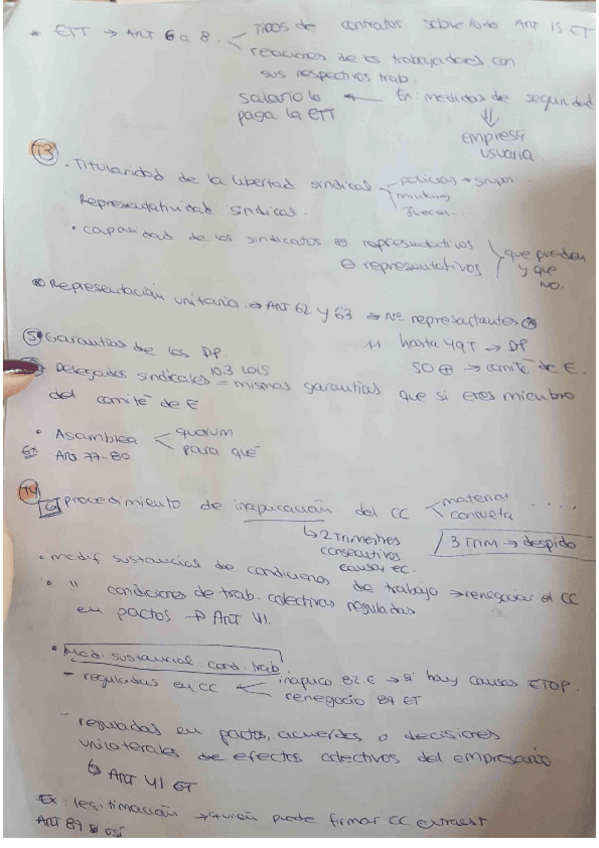 * ETT → ART 6 a 8. — Tipos de contratos sobre todo ART 15 ET
relaciones de los trabajadores con
sus respectivos trab.
salario lo ← Ex: medidas de seguridad
paga la ETT
empresa
usuaria.
T3
• Titularidad de la libertad sindical — policías → grupos
militares
Jueces.
Representatividad sindical.
• capacidad de los sindicatos ⊕ representativos
⊖ representativos
que pueden
y que
no.
⊗ Representación unitaria → ART 62 y 63 → nº representantes ⊗
11 hasta 49T → DP
50 ⊕ → comité de E.
5 Garantías de los DP.
Delegados sindicales 10.3 LOLS = mismas garantías que si eres miembro
del comité de E
• Asamblea — quorum
para qué
Ex Arts 77-80
T4
procedimiento de inaplicación del CC — materias ....
consulta
↳ 2 Trimestres
consecutivos
causas ec.
3 TRIM → despido
• modif sustancias de condiciones de trabajo → renegociar el CC
• " condiciones de trab. colectivas reguladas
en pactos → ART 41.
• Mod. sustancial cond. trab
- reguladas en CC — inaplico 82 E → si hay causas ETOP.
renegocio 87 ET
- reguladas en pactos, acuerdos o decisiones
unilaterales de efectos colectivos del empresario
↳ ART 41 ET
Ex: legitimación → quién puede firmar CC extraest
ART 87 y